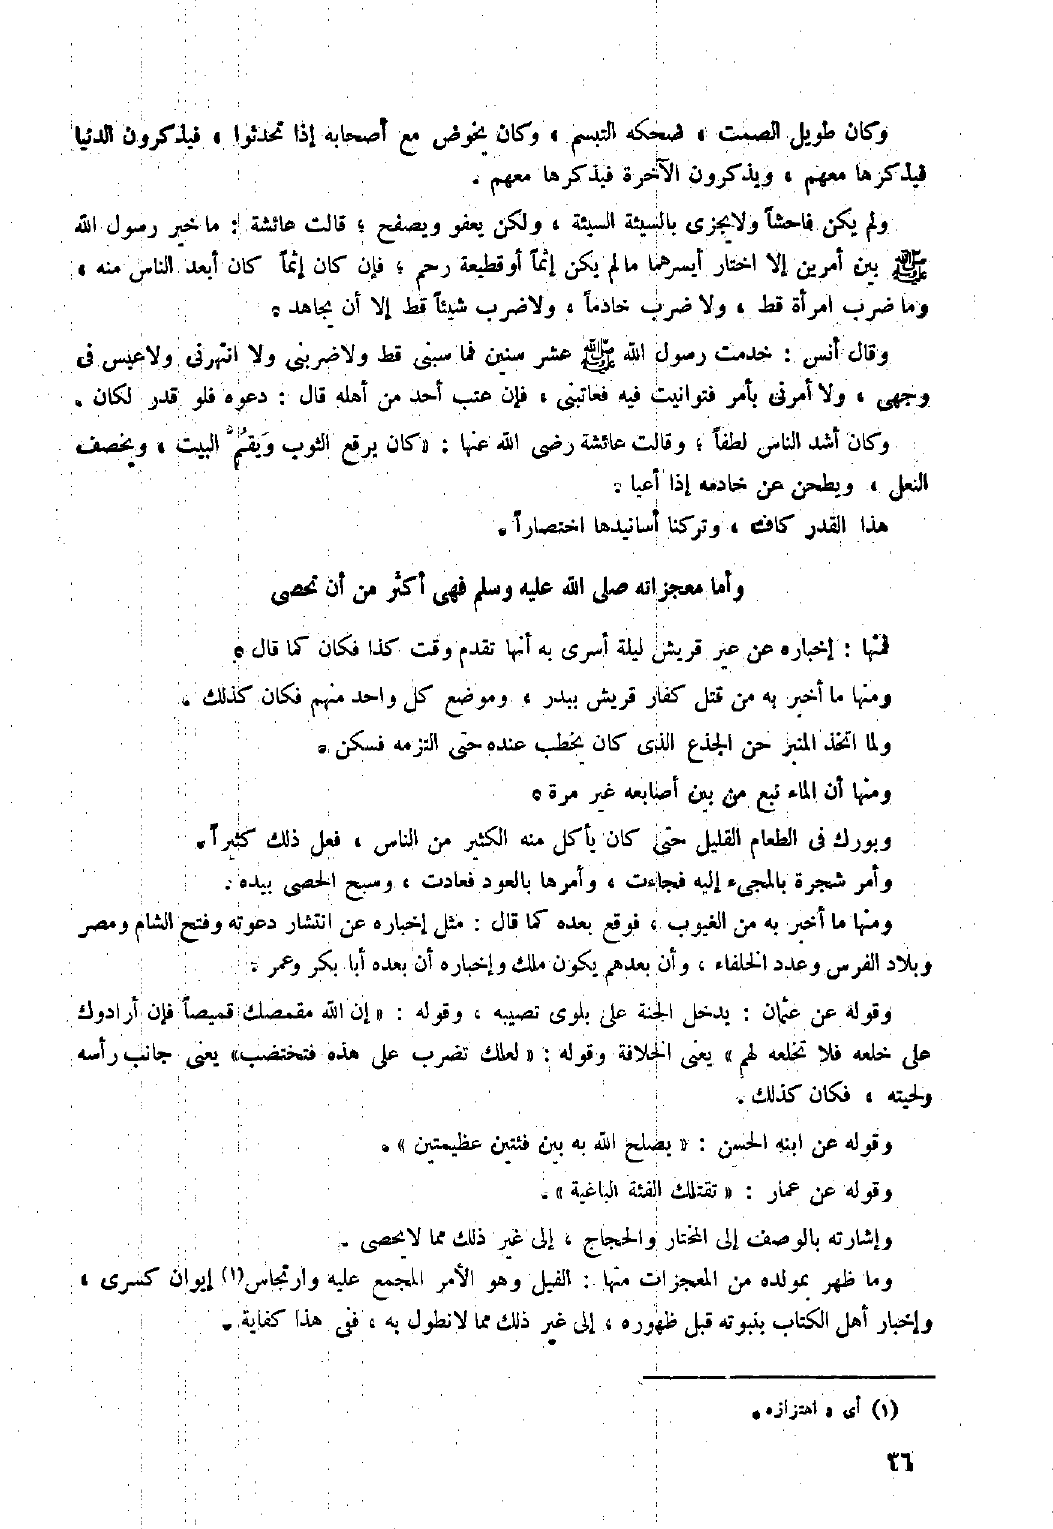 وكان طويل الصمت ، ضحكه التبسم ، وكان يخوض مع أصحابه إذا تحدثوا ، فيذكرون الدنيا
فيذكرها معهم ، ويذكرون الآخرة فيذكرها معهم .
ولم يكن فاحشاً ولايجزى بالسيئة السيئة ، ولكن يعفو ويصفح ؛ قالت عائشة : ماخير رسول الله
ﷺ بين أمرين إلا اختار أيسرهما مالم يكن إثماً أوقطيعة رحم ؛ فإن كان إثماً كان أبعد الناس منه ،
وماضرب امرأة قط ، ولا ضرب خادماً ، ولاضرب شيئاً قط إلا أن يجاهد .
وقال أنس : خدمت رسول الله ﷺ عشر سنين فما سبنى قط ولاضربنى ولا انتهرنى ولاعبس فى
وجهى ، ولا أمرنى بأمر فتوانيت فيه فعاتبنى ، فإن عتب أحد من أهله قال : دعوه فلو قدر لكان .
وكان أشد الناس لطفاً ؛ وقالت عائشة رضى الله عنها : «كان يرقع الثوب وَيقُمُّ البيت ، ويخصف
النعل ، ويطحن عن خادمه إذا أعيا .
هذا القدر كاف ، وتركنا أسانيدها اختصاراً .
وأما معجزاته صلى الله عليه وسلم فهى أكثر من أن تحصى
فمنها : إخباره عن عير قريش ليلة أسرى به أنها تقدم وقت كذا فكان كما قال .
ومنها ما أخبر به من قتل كفار قريش ببدر ، وموضع كل واحد منهم فكان كذلك .
ولما اتخذ المنبر حن الجذع الذى كان يخطب عنده حتى التزمه فسكن .
ومنها أن الماء نبع من بين أصابعه غير مرة .
وبورك فى الطعام القليل حتى كان يأكل منه الكثير من الناس ، فعل ذلك كثيراً .
وأمر شجرة بالمجيء إليه فجاءت ، وأمرها بالعود فعادت ، وسبح الحصى بيده .
ومنها ما أخبر به من الغيوب ، فوقع بعده كما قال : مثل إخباره عن انتشار دعوته وفتح الشام ومصر
وبلاد الفرس وعدد الخلفاء ، وأن بعدهم يكون ملك وإخباره أن بعده أبا بكر وعمر .
وقوله عن عثمان : يدخل الجنة على بلوى تصيبه ، وقوله : « إن الله مقمصك قميصاً فإن أرادوك
على خلعه فلا تخلعه لهم » يعنى الخلافة وقوله : « لعلك تضرب على هذه فتختضب» يعنى جانب رأسه
ولحيته ، فكان كذلك .
وقوله عن ابنه الحسن : « يصلح الله به بين فئتين عظيمتين » .
وقوله عن عمار : « تقتلك الفئة الباغية » .
وإشارته بالوصف إلى المختار والحجاج ، إلى غير ذلك مما لايحصى .
وما ظهر بمولده من المعجزات منها : الفيل وهو الأمر المجمع عليه وارتجاس(١) إيوان كسرى ،
وإخبار أهل الكتاب بنبوته قبل ظهوره ، إلى غير ذلك مما لانطول به ، ففى هذا كفاية .
(١) أى ، اهتزازه .
٣٦